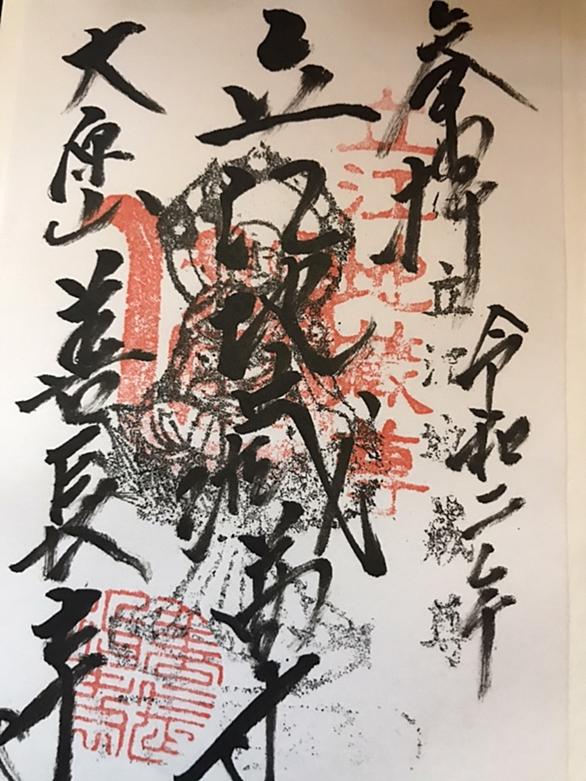 奉拝
令和二年
立江地蔵尊
立江地蔵尊
立江地蔵尊
大原山善長寺